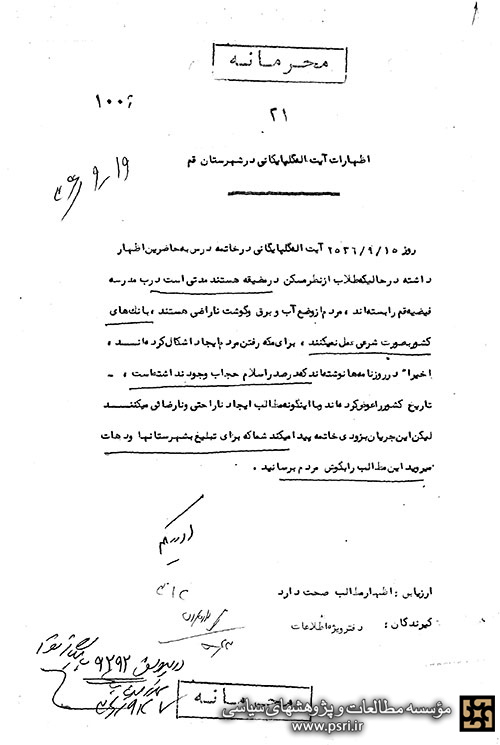 محرمانه
۱۰۰۶
۲۱
اظهارات آیت الله گلپایگانی در شهرستان قم
۱۹ر۹ر
روز ۲۵۳۶/۹/۱۵ آیت الله گلپایگانی در خاتمه درس به حاضرین اظهار
داشته در حالیکه طلاب از نظر مسکن در مضیقه هستند مدتی است درب مدرسه
فیضیه قم را بسته اند ، مردم از وضع آب و برق و گوشت ناراضی هستند ، بانک های
کشور بصورت شرعی عمل نمیکنند ، برای مکه رفتن مردم ایجاد اشکال کرده اند ،
اخیرا" در روزنامه ها نوشته اند که در صدر اسلام حجاب وجود نداشته است ، -
تاریخ کشور را عوض کرده اند و با اینگونه مطالب ایجاد ناراحتی و نارضائی میکنند
لیکن این جریان بزودی خاتمه پیدا میکند شما که برای تبلیغ بشهرستانها و دهات
میروید این مطالب را بگوش مردم برسانید .
ارزیابی : اظهار مطالب صحت دارد
گیرندگان : دفتر ویژه اطلاعات
۹۲۹۲
محرمانه
مؤسسه مطالعات و پژوهشهای سیاسی
www.psri.ir